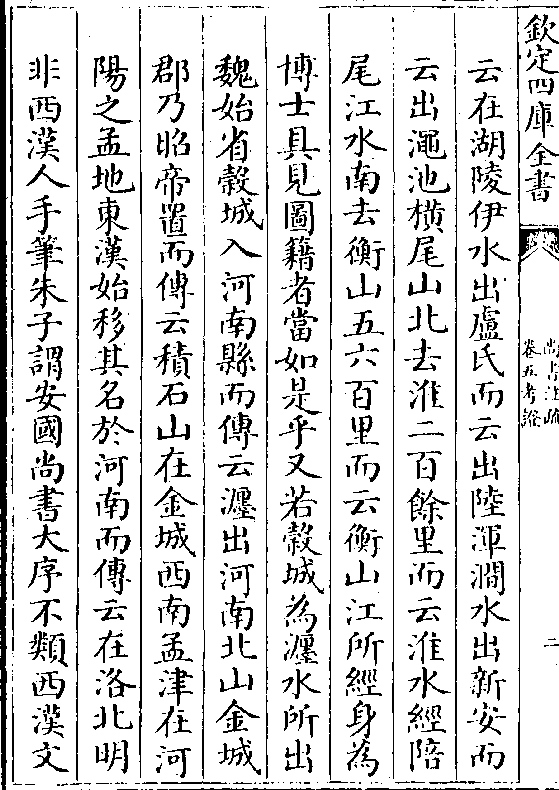 欽定四庫全書
尚書注疏
卷五考證
二
云在湖陵伊水出盧氏而云出陸渾澗水出新安而
云出澠池橫尾山北去淮二百餘里而云淮水經陪
尾江水南去衡山五六百里而云衡山江所經身為
博士具見圖籍者當如是乎又若榖城為瀍水所出
魏始省榖城入河南縣而傳云瀍出河南北山金城
郡乃昭帝置而傳云積石山在金城西南孟津在河
陽之孟地東漢始移其名於河南而傳云在洛北明
非西漢人手筆朱子謂安國尚書大序不類西漢文